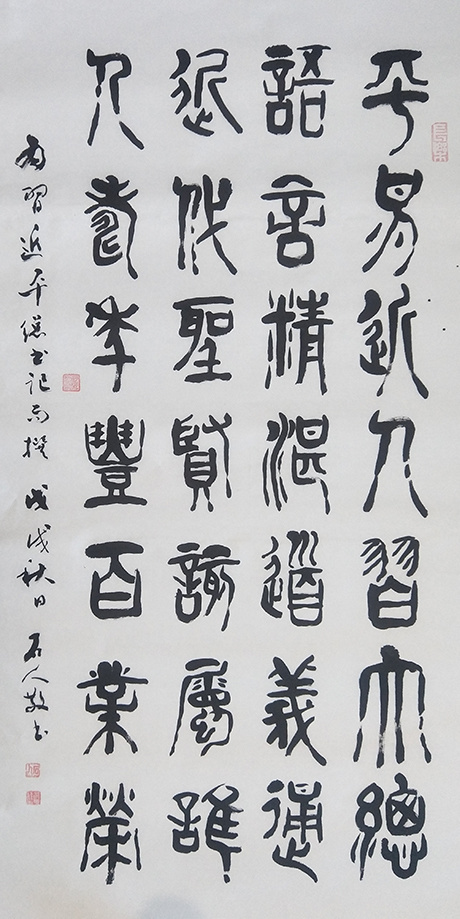 平易近人習大總
語言精湛道義通
代聖賢屬誰
人壽年豐百業榮
為習近平總書記而撰 戊戌秋日 石人敬書